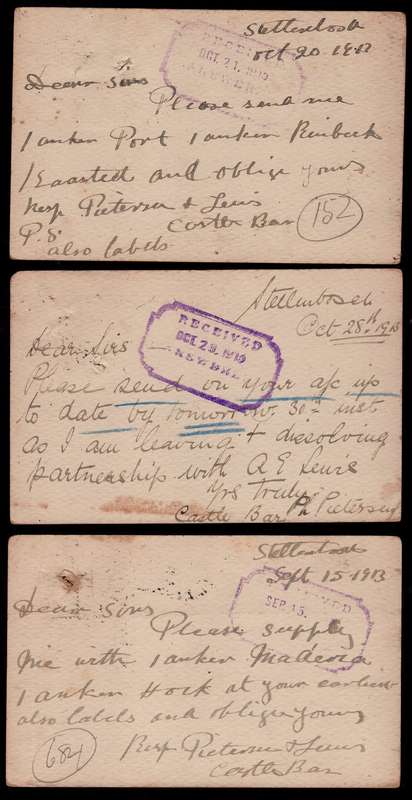 Stellenbosch
Oct 20 1913
RECEIVED
OCT. 21. 1913
Dear Sirs
Please send me
1 anken Port 1 anken
1 and oblige yours
Resp Pietersen & Lewis
P.S. Castle Bar
also labels
152
Stellenbosch
Oct. 28th 1913
RECEIVED
OCT. 29. 1913
Dear Sirs
Please send on your a/c up
to date by tomorrow. 30th inst
as I am leaving & dissolving
partnership with A E Lewis
Yrs Truly
Castle Bar Pietersen
Stellenbosch
Sept 15 1913
SEP. 15.
Dear Sirs
Please supply
me with 1 anken Madeira
1 anken Hock at your earliest
also labels and oblige yours
Resp Pietersen & Lewis
Castle Bar
684